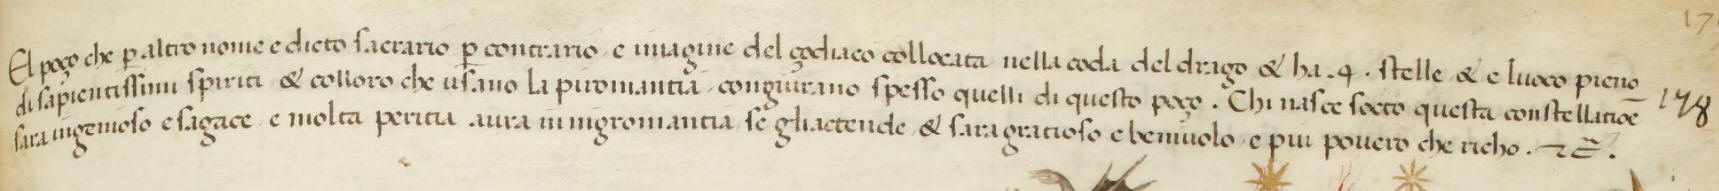 El poço che p̱ altro nome e dicto sacrario p̱ contrario e imagine del çodiaco collocata nella coda del drago & ha .4. stelle & e luoco pieno
di sapientissimi spiriti & colloro che usano la piromantia congiurano spesso quelli di questo poço. Chi nasce socto questa constellatiōe
sara ingenioso e sagace e molta peritia aura in nigromantia se gliactende & sara gratioso e beniuolo e piu pouero che richo. ⁊ c̃.
178